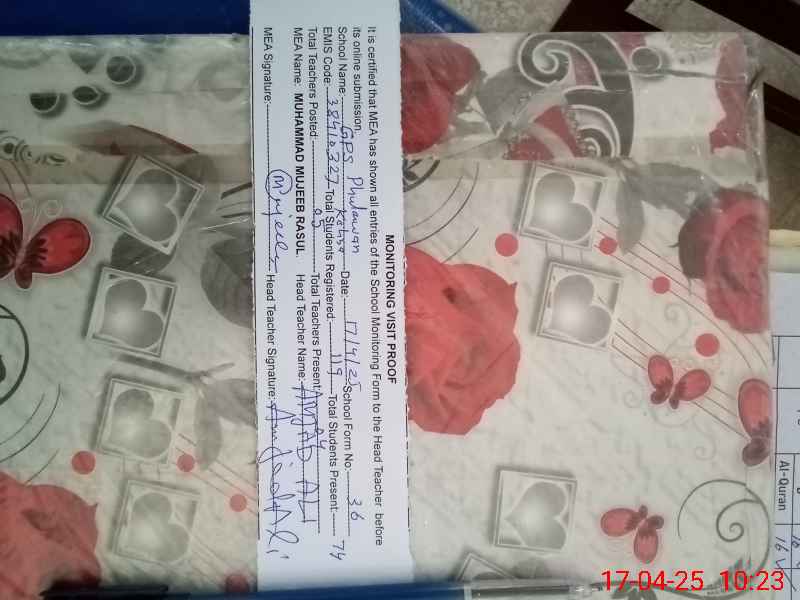 MONITORING VISIT PROOF
It is certified that MEA has shown all entries of the School Monitoring Form to the Head Teacher before
its online submission.
School Name: GPS Phularwan Kohna Date: 17/4/25 School Form No: 36
EMIS Code: 38410327 Total Students Registered: 119 Total Students Present: 74
Total Teachers Posted: 05 Total Teachers Present: 04
MEA Name: MUHAMMAD MUJEEB RASUL. Head Teacher Name: AMJAD ALI
MEA Signature: Mujeeb Head Teacher Signature: Amjad Ali
Al-Quran
16
17-04-25 10:23